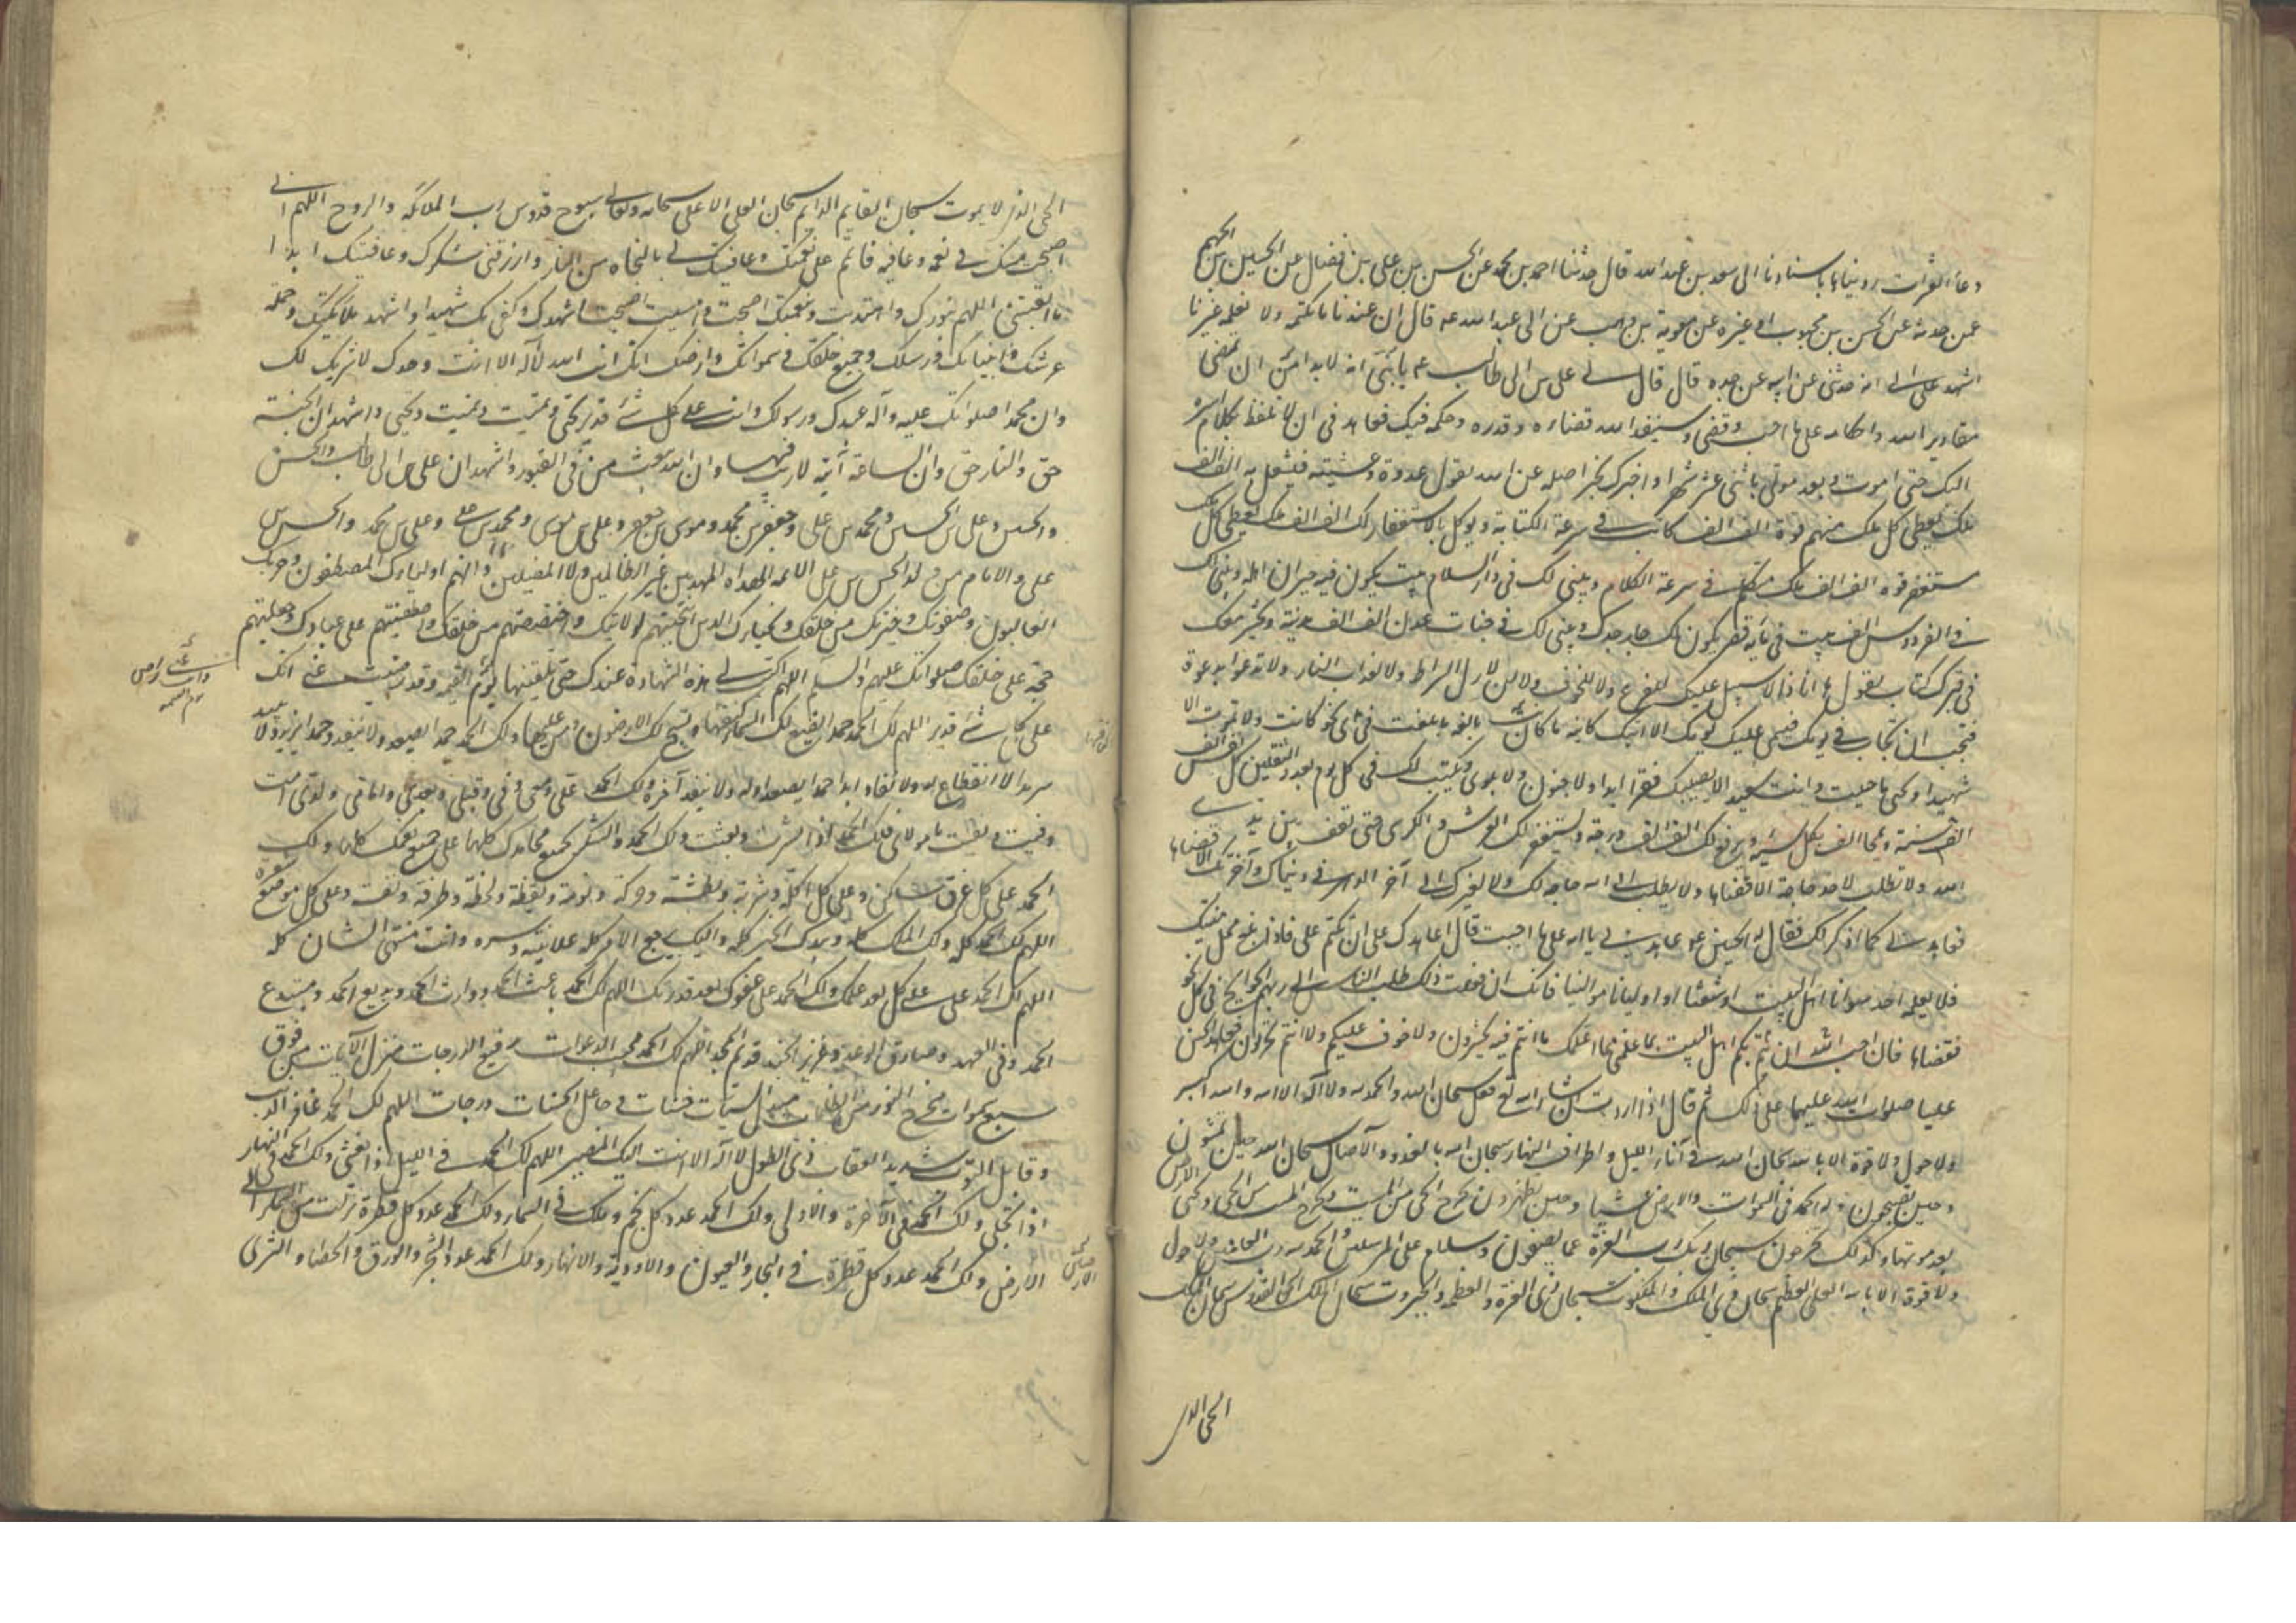 دعاء العشرات رويناها باسنادنا الى سعد بن عبد الله قال حدثنا احمد بن محمد عن الحسن بن على بن فضال عن الحسين بن الجهم
عمن حدثه عن الحسن بن محبوب او غيره عن معوية بن وهب عن ابى عبد الله عه قال ان عندنا ما نكتمه ولا نعلمه غيرنا
اشهد على ابى انه حدثنى عن ابيه عن جده قال قال لى على بن ابى طالب عه يا بنى انه لا بد من ان تمضى
مقادير الله واحكامه على ما احب وقضى وسينفذ الله قضاءه وقدره وحكمه فيك فعاهدنى ان لا تلفظ بكلام اسره
اليك حتى اموت وبعد موتى باثنى عشر شهرا واخبرك بخبر اصله عن الله تقول غدوة وعشية فيشغل به الف الف
ملك يعطى كل ملك منهم قوة الف الف كاتب فى سرعة الكتابة ويوكل بالاستغفار لك الف الف ملك يعطى كل
مستغفر قوة الف الف متكلم فى سرعة الكلام ويبنى لك فى دار السلام بيت يكون فيه جيران اهله ويبنى لك
فى الفردوس الف بيت فى مأية قصر يكون لك جار جدك ويبنى لك فى جنات عدن الف الف مدينة ويحشر معك
فى قبرك كتاب يقول ها انا ذا لا سبيل عليك للفزع ولا للخوف ولا لزلازل الصراط ولا لعذاب النار ولا تدعوا بدعوة
فتحب ان تجاب فى يومك فيمسى عليك يومك الا اتتك كائنة ما كانت بالغة ما بلغت فى اى نحو كانت ولا تموت الا
شهيدا وتحيى ما حييت وانت سعيد لا يصيبك فقر ابدا ولا جنون ولا بلوى ويكتب لك فى كل يوم بعدد الثقلين كل نفس الف
الف حسنة ويمحا الف الف سيئة ويرفع لك الف الف درجة ويستغفر لك العرش والكرسى حتى تقف بين يدى
الله ولا تطلب لاحد حاجة الا قضاها ولا تطلب الى الله حاجة لك ولا لغيرك الى آخر الدهر فى دنياك وآخرتك الا قضاها
فعاهدنى كما اذكر لك فقال له الحسين عه عاهدنى يا ابه على ما احببت قال اعاهدك على ان تكتم على فاذا بلغ محل منيتك
فلا تعلمه احدا سوانا اهل البيت او شيعتنا او اوليائنا وموالينا فانك ان فعلت ذلك طلب الناس الى ربهم الحوائج فى كل نحو
فقضاها فانا احب ان يتم بكم اهل البيت بما علمنى مما اعلمك ما انتم فيه تحشرون ولا خوف عليكم ولا انتم تحزنون فعاهد الحسين
عليا صلوات الله عليهما على ذلك ثم قال اذا اردت ان شاء الله تع فقل سبحان الله والحمد لله ولا اله الا الله والله اكبر
ولا حول ولا قوة الا بالله سبحان الله فى آناء الليل واطراف النهار سبحان الله بالغدو والآصال سبحان الله حين تمسون
وحين تصبحون وله الحمد فى السموات والارض وعشيا وحين تظهرون يخرج الحى من الميت ويخرج الميت من الحى ويحيى الارض
بعد موتها وكذلك تخرجون سبحان ربك رب العزة عما يصفون وسلام على المرسلين والحمد لله رب العالمين ولا حول
ولا قوة الا بالله العلى العظيم سبحان ذى الملك والملكوت سبحان ذى العزة والعظمة والجبروت سبحان الملك الحق القدوس سبحان الملك
الحى الذى
الحى الذى لا يموت سبحان القايم الدايم سبحان العلى الاعلى سبحانه وتعالى سبوح قدوس رب الملائكة والروح اللهم انى
اصبحت منك فى نعمة وعافية فاتمم على نعمتك وعافيتك لى بالنجاة من النار وارزقنى شكرك وعافيتك ابدا
ما ابقيتنى اللهم بنورك اهتديت وبنعمتك اصبحت وامسيت اصبحت اشهدك وكفى بك شهيدا واشهد ملائكتك وحملة
عرشك وانبيائك ورسلك وجميع خلقك فى سمواتك وارضك انك انت الله لا اله الا انت وحدك لا شريك لك
وان محمدا صلواتك عليه وآله عبدك ورسولك وانت على كل شئ قدير تحيى وتميت وتميت وتحيى واشهد ان الجنة
حق والنار حق وان الساعة آتية لا ريب فيها وان الله يبعث من فى القبور واشهد ان على بن ابى طالب والحسن
والحسين وعلى بن الحسين ومحمد بن على وجعفر بن محمد وموسى بن جعفر وعلى بن موسى ومحمد بن على وعلى بن محمد والحسن بن
على والامام من ولد الحسن بن على الائمة الهداة المهديين غير الضالين ولا المضلين وانهم اولياؤك المصطفون وحزبك
الغالبون وصفوتك وخيرتك من خلقك ونجباؤك الذين انتجبتهم لولايتك واختصصتهم من خلقك واصطفيتهم على عبادك وجعلتهم
حجة على خلقك صلواتك عليهم والسلم اللهم اكتب لى هذه الشهادة عندك حتى تلقينها يوم القيمة وقد رضيت عنى انك
على كل شئ قدير اللهم لك الحمد حمدا تضع لك السماء كنفيها وتسبح لك الارضون ومن عليها ولك الحمد حمدا يصعد ولا ينفد وحمدا يزيد ولا يبيد
سرمدا لا انقطاع له ولا نفاد ابدا حمدا يصعد اوله ولا ينفد آخره ولك الحمد على ومعى وفى وقبلى وبعدى وامامى ولدى اذا مت
وفنيت وبقيت يا مولاى فلك الحمد اذا نشرت وبعثت ولك الحمد والشكر بجميع محامدك كلها على جميع نعمك كلها ولك
الحمد على كل عرق ساكن وعلى كل اكلة وشربة وبطشة وحركة ونومة ويقظة ولحظة وطرفة ونفس وعلى كل موضع شعرة
اللهم لك الحمد كله ولك الملك كله وبيدك الخير كله واليك يرجع الامر كله علانيته وسره وانت منتهى الشان كله
اللهم لك الحمد على حلمك بعد علمك ولك الحمد على عفوك بعد قدرتك اللهم لك الحمد باعث الحمد ووارث الحمد وبديع الحمد ومبتدع
الحمد وفى العهد وصادق الوعد وعزيز الجند قديم المجد اللهم لك الحمد مجيب الدعوات رفيع الدرجات منزل الآيات من فوق
سبع سموات مخرج النور من الظلمات مبدل السيئات حسنات وجاعل الحسنات درجات اللهم لك الحمد غافر الذنب
وقابل التوب شديد العقاب ذى الطول لا اله الا انت اليك المصير اللهم لك الحمد فى الليل اذا يغشى ولك الحمد فى النهار
اذا تجلى ولك الحمد فى الآخرة والاولى ولك الحمد عدد كل نجم وملك فى السماء ولك الحمد عدد كل قطرة نزلت من السماء الى
الارض ولك الحمد عدد كل قطرة فى البحار والعيون والاودية والانهار ولك الحمد عدد الشجر والورق والحصا والثرى